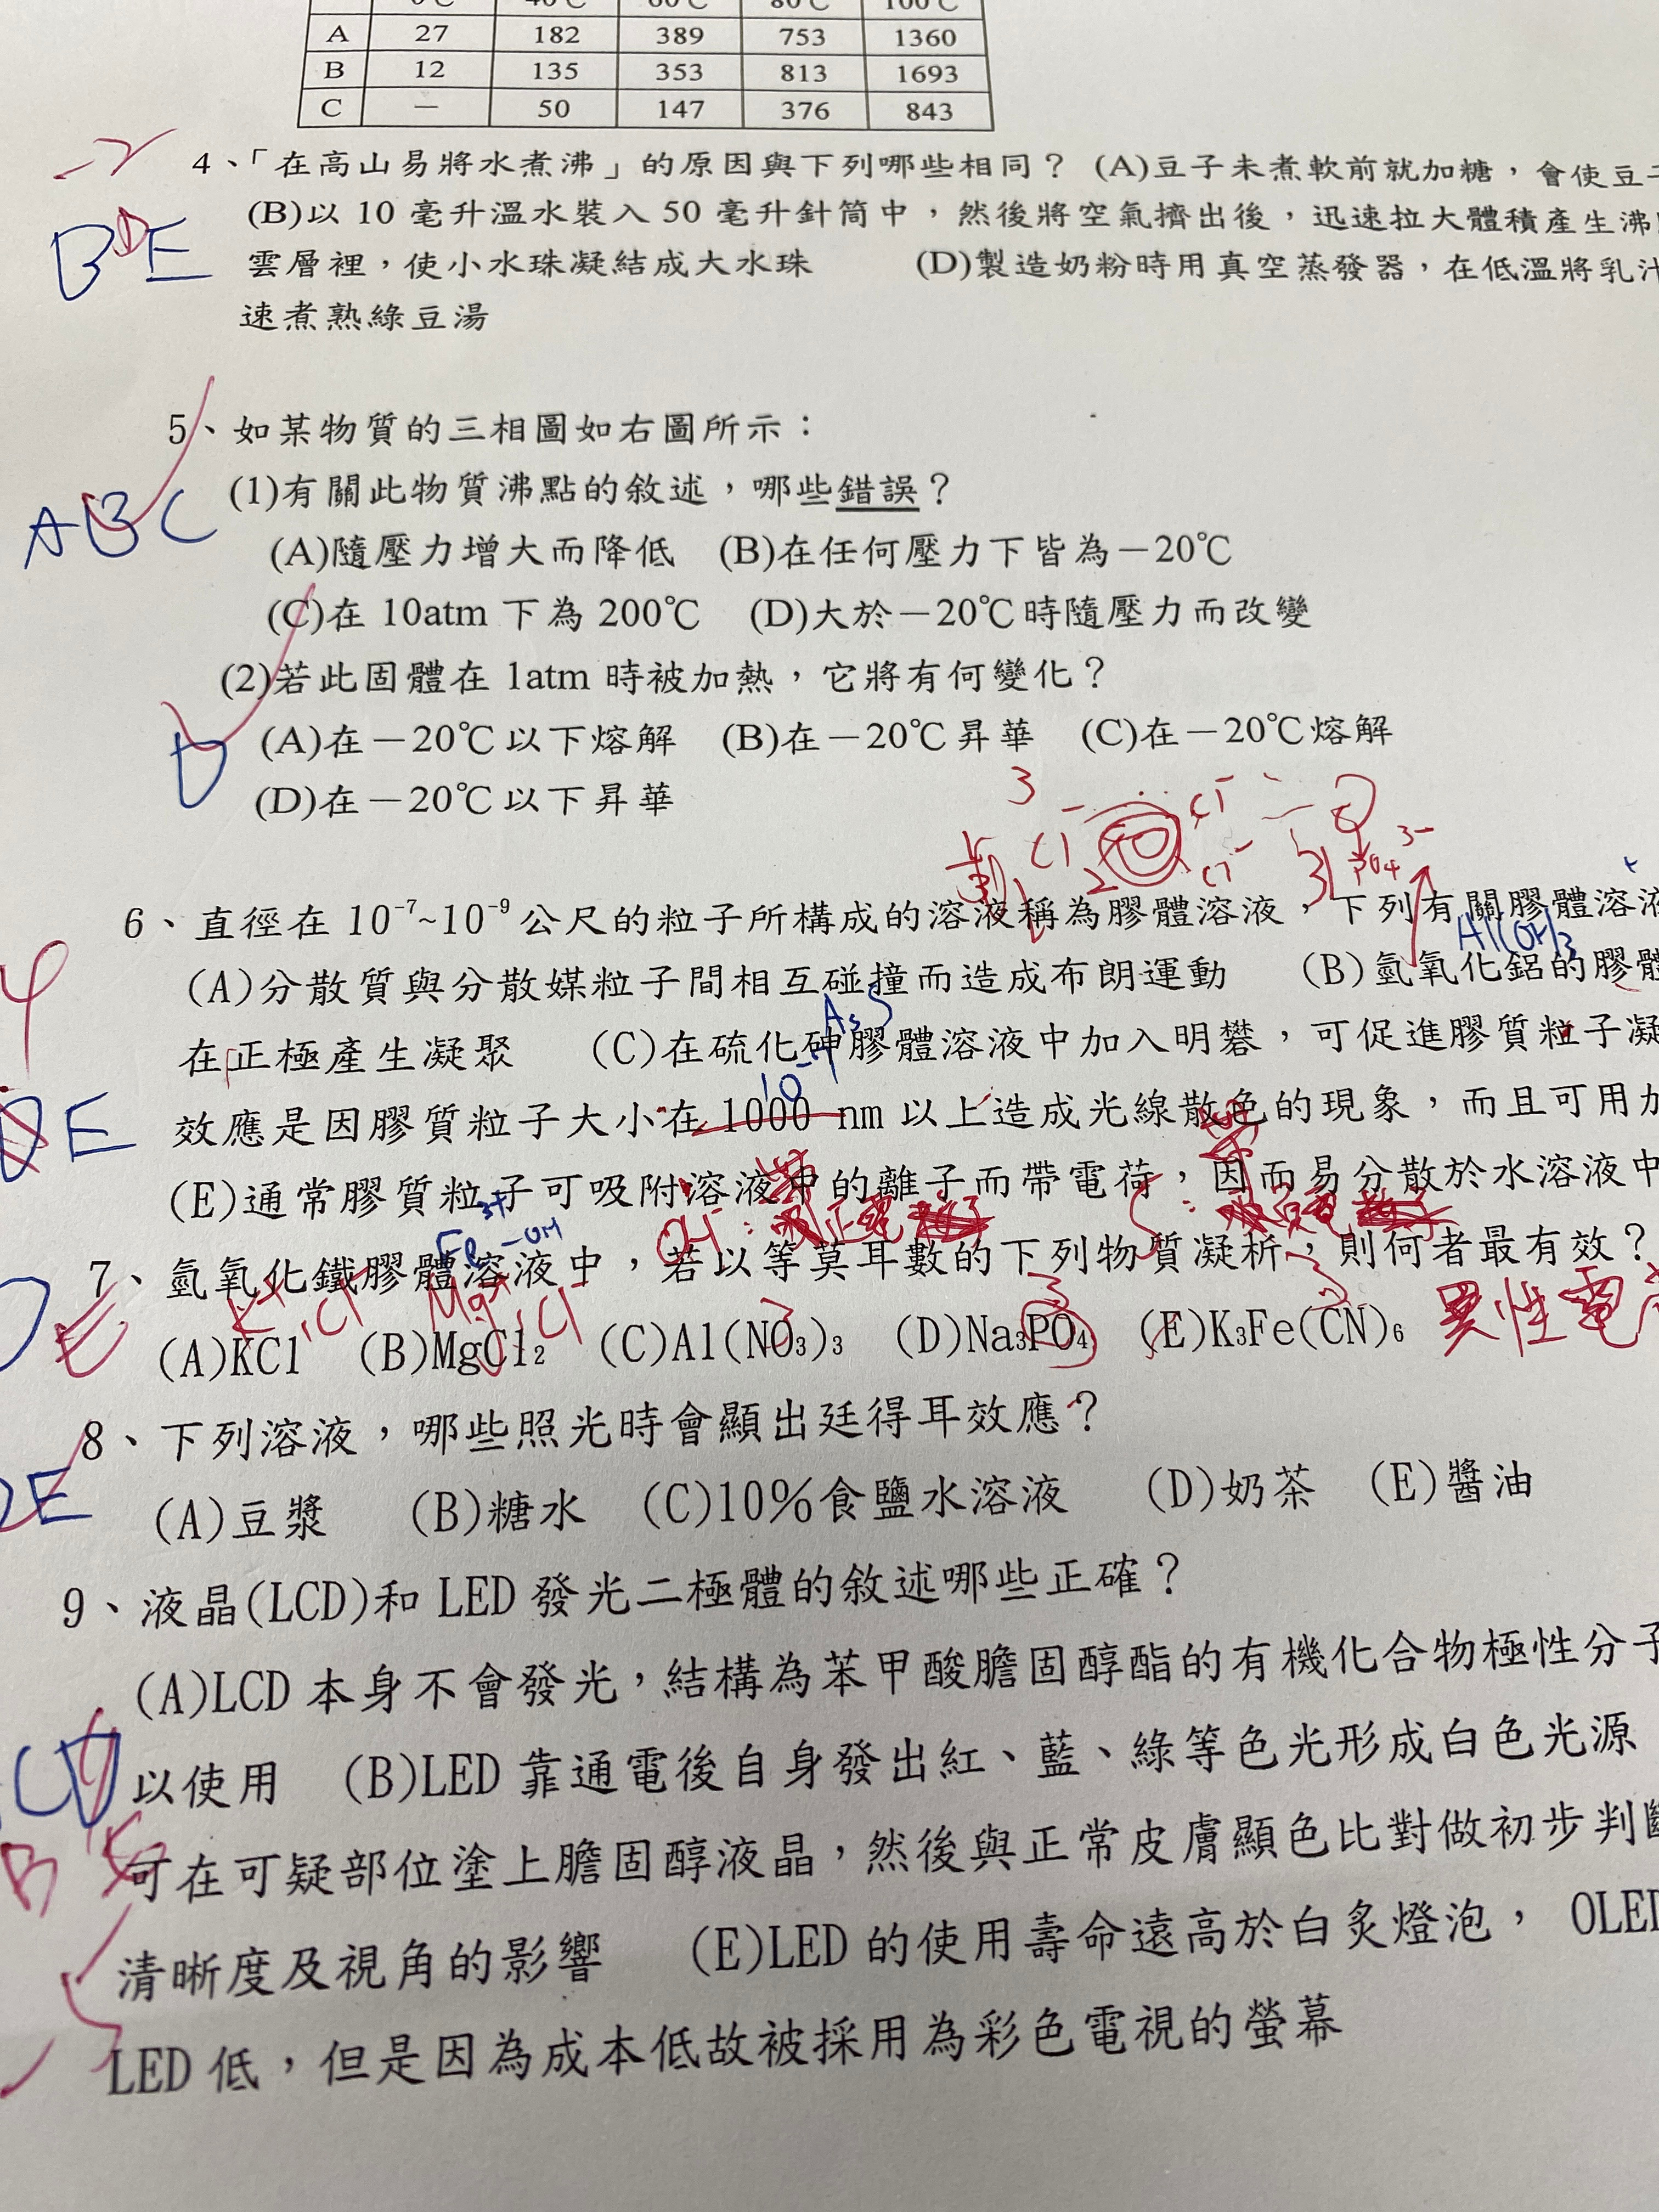 0℃ 40℃ 60℃ 80℃ 100℃
A 27 182 389 753 1360
B 12 135 353 813 1693
C — 50 147 376 843
-2
4、「在高山易將水煮沸」的原因與下列哪些相同? (A)豆子未煮軟前就加糖,會使豆子
BDE
(B)以 10 毫升溫水裝入 50 毫升針筒中,然後將空氣擠出後,迅速拉大體積產生沸
雲層裡,使小水珠凝結成大水珠 (D)製造奶粉時用真空蒸發器,在低溫將乳汁
速煮熟綠豆湯
5、如某物質的三相圖如右圖所示:
ABC
(1)有關此物質沸點的敘述,哪些錯誤?
(A)隨壓力增大而降低 (B)在任何壓力下皆為-20℃
(C)在 10atm 下為 200℃ (D)大於-20℃時隨壓力而改變
(2)若此固體在 1atm 時被加熱,它將有何變化?
D
(A)在-20℃以下熔解 (B)在-20℃昇華 (C)在-20℃熔解
(D)在-20℃以下昇華
3 Cl⁻ Cl⁻ Cl⁻ PO₄ 3-
6、直徑在 10⁻⁷~10⁻⁹公尺的粒子所構成的溶液稱為膠體溶液,下列有關膠體溶液
Al(OH)3
(A)分散質與分散媒粒子間相互碰撞而造成布朗運動 (B)氫氧化鋁的膠體
在正極產生凝聚 (C)在硫化砷膠體溶液中加入明礬,可促進膠質粒子凝
DE
效應是因膠質粒子大小在 1000 nm 以上造成光線散色的現象,而且可用加
(E)通常膠質粒子可吸附溶液中的離子而帶電荷,因而易分散於水溶液中
Fe 3+ -OH
7、氫氧化鐵膠體溶液中,若以等莫耳數的下列物質凝析,則何者最有效?
E
K⁺,Cl⁻ Mg⁺,Cl⁻ 異性電
(A)KCl (B)MgCl₂ (C)Al(NO₃)₃ (D)Na₃PO₄ (E)K₃Fe(CN)₆
8、下列溶液,哪些照光時會顯出廷得耳效應?
DE
(A)豆漿 (B)糖水 (C)10%食鹽水溶液 (D)奶茶 (E)醬油
9、液晶(LCD)和 LED 發光二極體的敘述哪些正確?
(A)LCD 本身不會發光,結構為苯甲酸膽固醇酯的有機化合物極性分子
CD
以使用 (B)LED 靠通電後自身發出紅、藍、綠等色光形成白色光源
B
可在可疑部位塗上膽固醇液晶,然後與正常皮膚顯色比對做初步判斷
清晰度及視角的影響 (E)LED 的使用壽命遠高於白炙燈泡, OLED
LED 低,但是因為成本低故被採用為彩色電視的螢幕